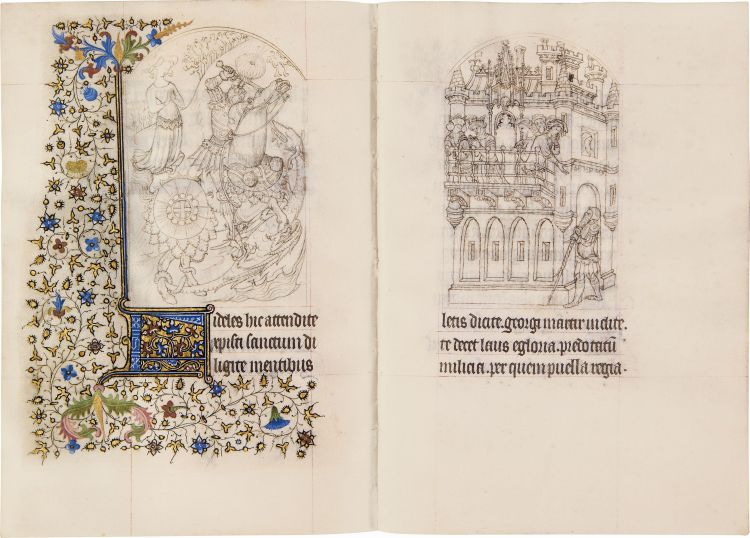 Fideles hic attendite
xpisti sanctum di
ligite mentibus
letis dicite. georgi martir inclite.
te decet laus et gloria. predotatū
milicia. per quem puella regia.